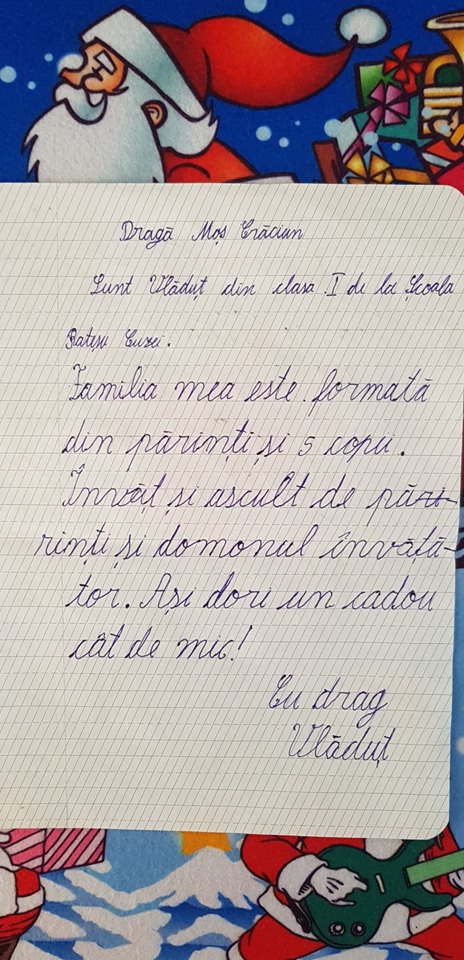 Dragă Moș Crăciun
Sunt Vlăduț din clasa I de la Școala
Ratișu Cuzei.
Familia mea este formată
din părinți și 5 copii.
Învăț și ascult de pări-
rinți și domonul învăță-
tor. Ași dori un cadou
cât de mic!
Cu drag
Vlăduț